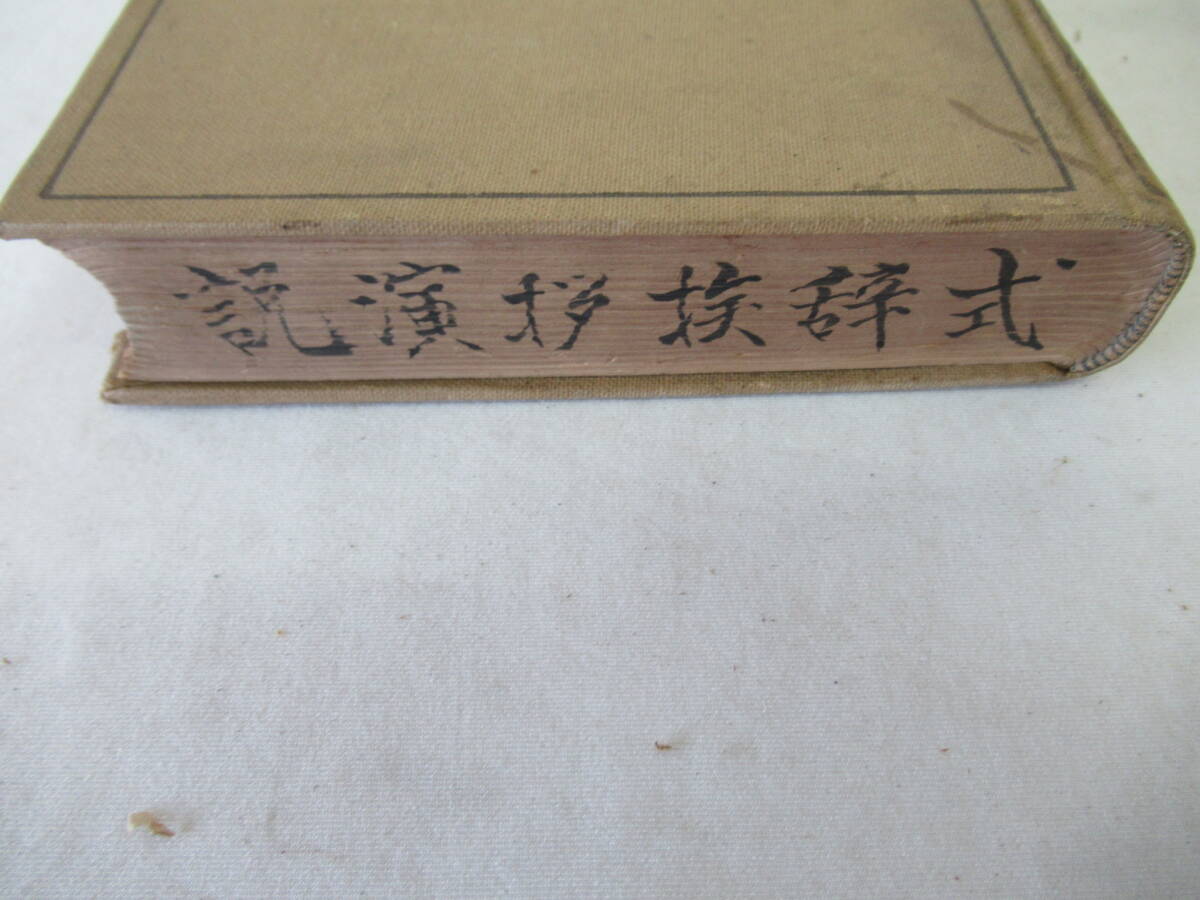 式辞挨拶演説